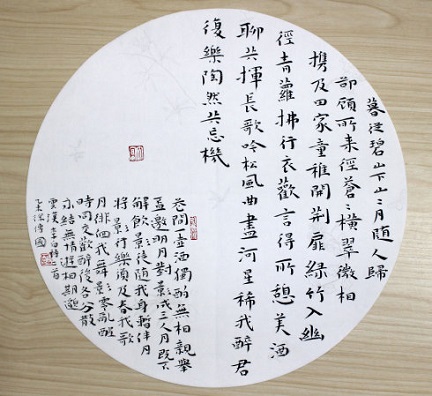 暮從碧山下山〻月随人歸
却顧所来徑蒼〻横翠微相
携及田家童稚開荆扉緑竹入幽
徑青蘿拂行衣歡言得所憩美酒
聊共揮長歌吟松風曲盡河星稀我醉君
復樂陶然共忘機
花間一壺酒獨酌無相親舉
盃邀明月對影成三人月既不
解飲影徒随我身暫伴月
將影行樂須及春我歌
月徘徊我舞影零亂醒
時同交歡醉後各分散
永結無情遊相期邈
雲漢 李白詩二首